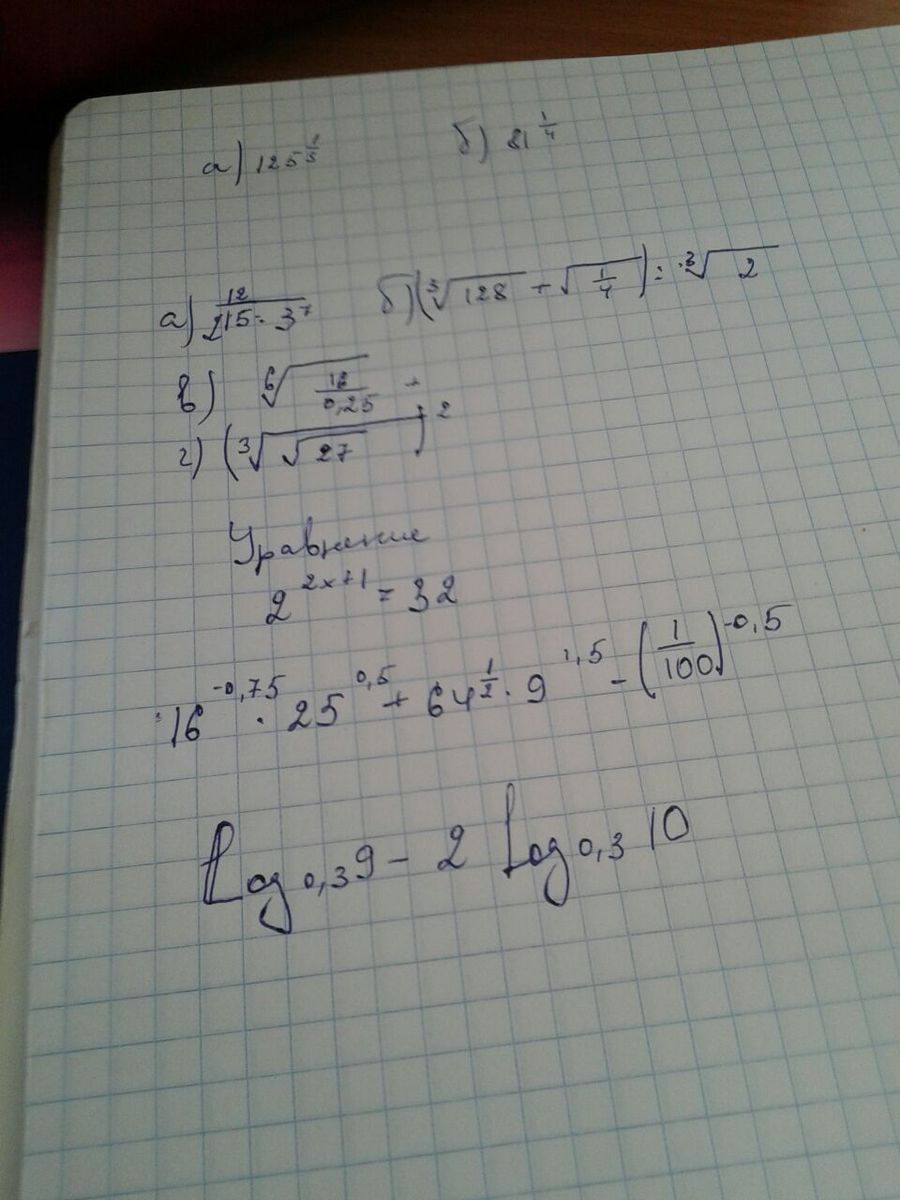 а) 125^(1/3) б) 81^(1/4)
а) 12/(215 · 3^7) б) (∛128 + √(1/4)) : ∛2
в) ⁶√(16/0,25)
г) (∛√27)^2
Уравнение
2^(2x+1) = 32
16^(-0,75) · 25^(0,5) + 64^(1/2) · 9^(1,5) - (1/100)^(-0,5)
Log_0,3 9 - 2 Log_0,3 10